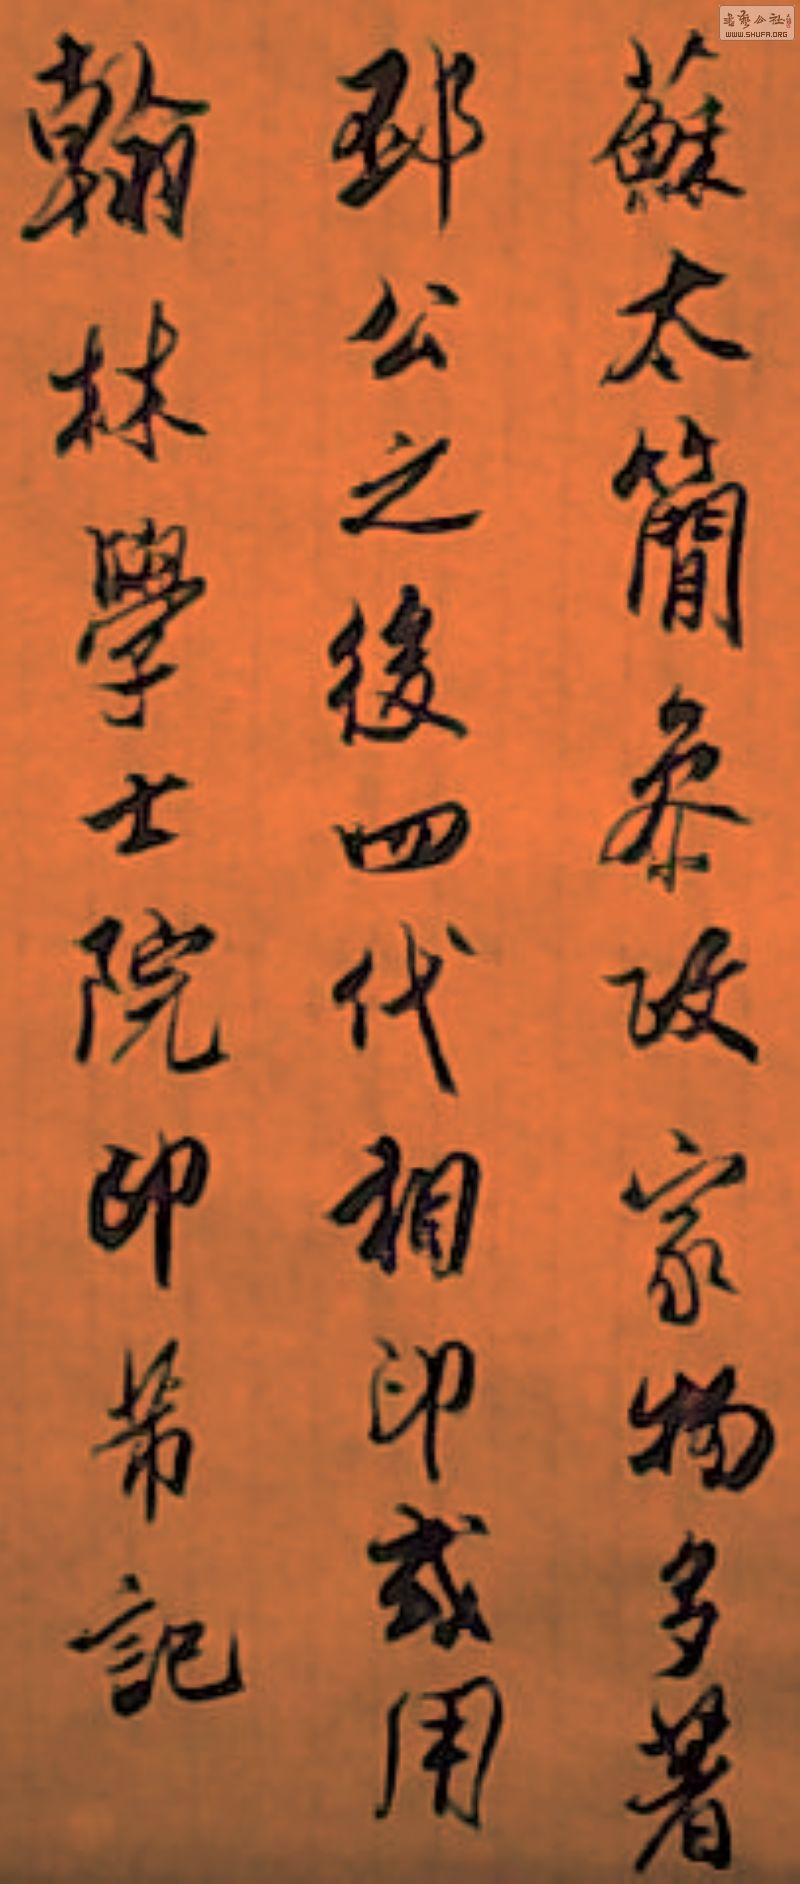 蘇太簡叅政家物多著
邳公之後四代相印或用
翰林學士院印芾記
書藝公社
WWW.SHUFA.ORG